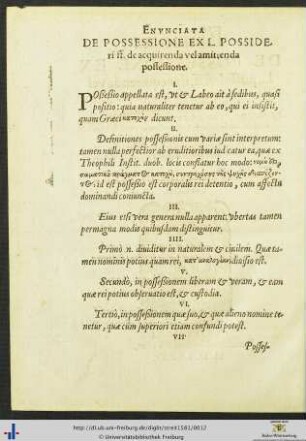 ENVNCIATA
DE POSSESSIONE EX L. POSSIDE-
ri ff. de acquirenda vel amittenda
possessione.
I.
POssessio appellata est, vt & Labeo ait à sedibus, quasi
positio: quia naturaliter tenetur ab eo, qui ei insistit,
quam Græci κατοχὴν dicunt.
II.
Definitiones possessionis cum variæ sint interpretum:
tamen nulla perfectior ab eruditioribus iud catur ea, quæ ex
Theophili Instit. duob. locis conflatur hoc modo:
σωματικοῦ πράγματος κατοχὴ, ψυχῆς
id est possessio est corporalis rei detentio, cum affectu
dominandi coniuncta.
III.
Eius etsi vera genera nulla apparent: vbertas tamen
permagna modis quibusdam distinguitur.
IIII.
Primò n. diuiditur in naturalem & ciuilem. Quæ ta-
men nominis potius quam rei, diuisio est.
V.
Secundò, in possessionem liberam & veram, & eam
quæ rei potius obseruatio est, & custodia.
VI.
Tertiò, in possessionem quæ suo, & quæ alieno nomine te-
netur, quæ cum superiori etiam confundi potest.
VII
Posses-
http://dl.ub.uni-freiburg.de/diglit/street1581/0012
© Universitätsbibliothek Freiburg